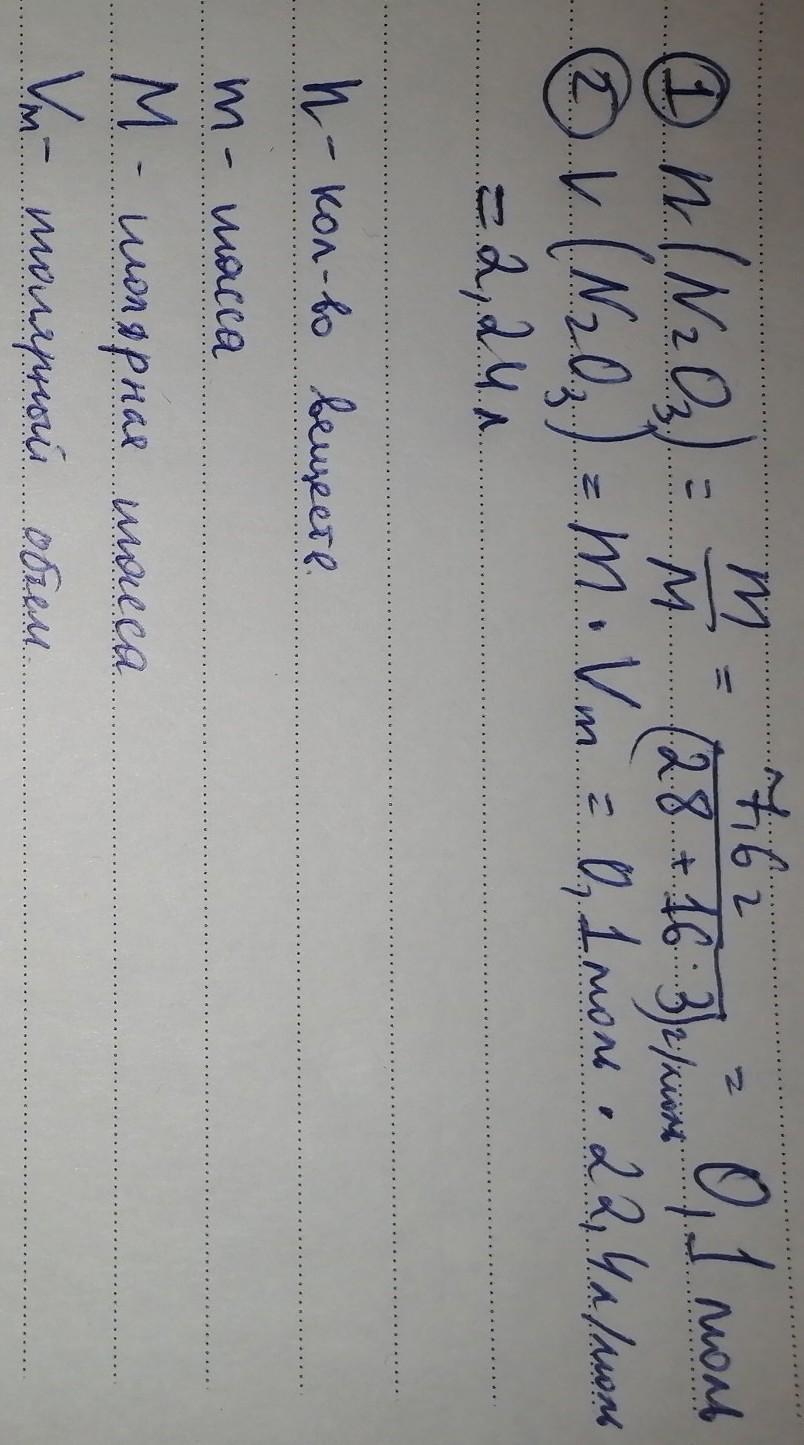 ① n(N₂O₃) = m/M = 7,6г/(28 + 16·3)г/моль = 0,1 моль
② V(N₂O₃) = n · Vm = 0,1 моль · 22,4 л/моль
= 2,24 л
n - кол-во веществ.
m - масса
M - молярная масса
Vm - молярный объем.